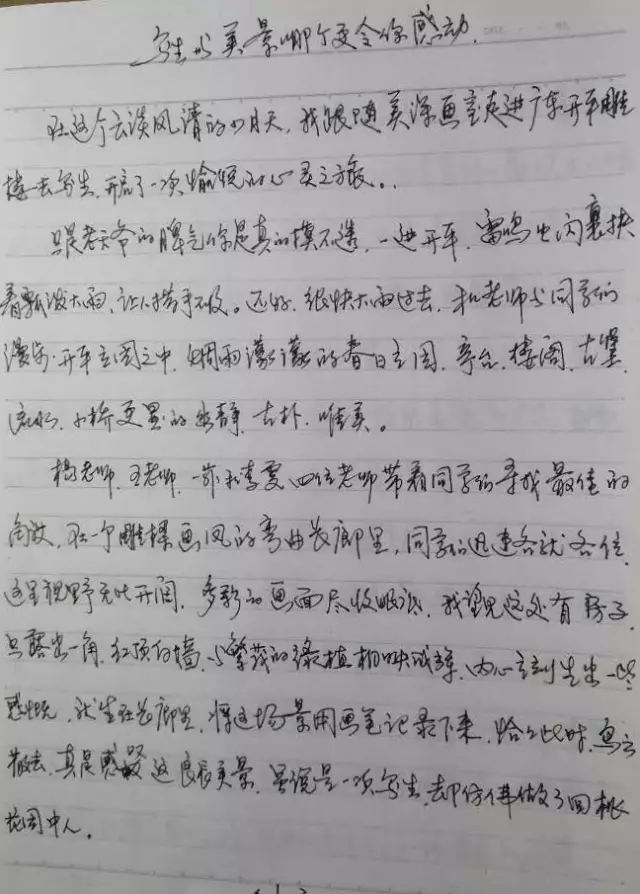 写生与美景哪个更令你感动.
在这个云淡风清的4月天,我跟随美深画室走进广东开平雕
楼去写生,开启了一次愉悦的心灵之旅。.
只是老天爷的脾气你是真的摸不透,一进开平,雷鸣电闪裹挟
着瓢泼大雨,让人措手不及。还好,很快大雨过去,和老师与同学们
漫步.开平立园之中,烟雨濛濛的春日立园,亭台.楼阁,古堡,
流水,小桥更显的幽静,古朴,唯美。
杨老师,王老师,李雯四位老师带着同学们寻找最佳的
角度,在一个雕楼画风的弯曲长廊里,同学们迅速各就各位
这里视野无比开阔,多彩的画面尽收眼底,我望见远处有房子,
只露出一角,红顶白墙,与繁茂的绿植相映成辉,内心立刻生出一些
感慨,就坐在长廊里,将这场景用画笔记录下来,恰好此时,乌云
散去,真是感叹这良辰美景,虽说是一次写生,却仿佛做了回桃
花园中人。
1